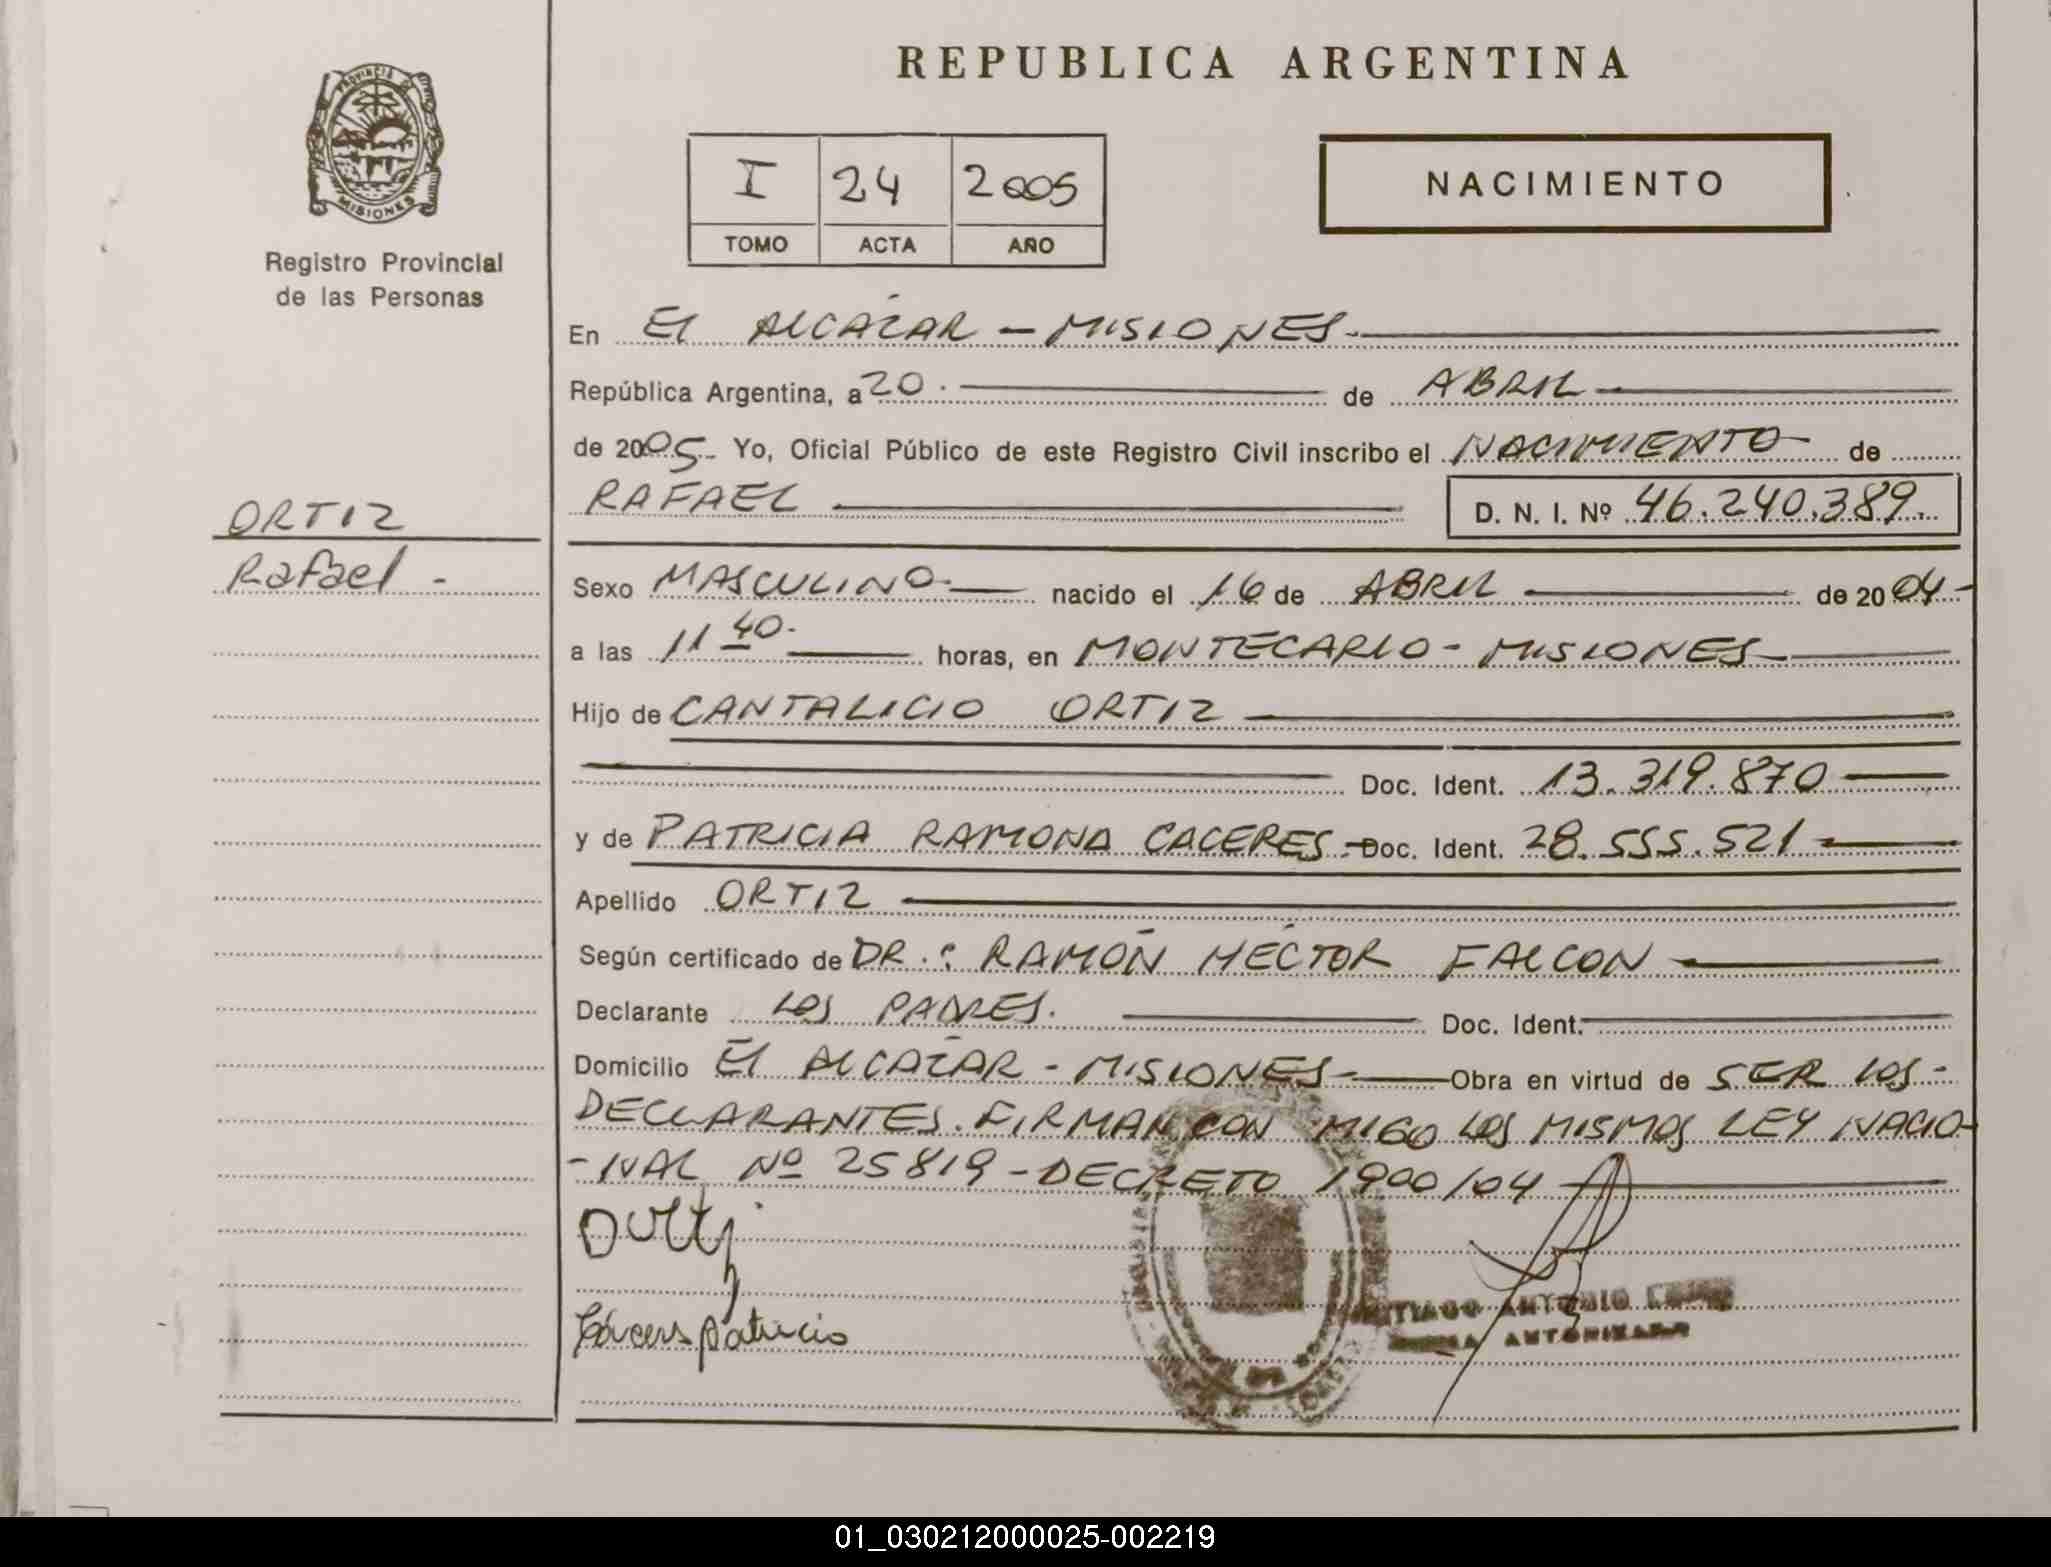 REPUBLICA ARGENTINA
PROVINCIA DE
MISIONES
Registro Provincial
de las Personas
I 24 2005
TOMO ACTA AÑO
NACIMIENTO
En El ALCAZAR - MISIONES.
República Argentina, a 20. de ABRIL
de 2005. Yo, Oficial Público de este Registro Civil inscribo el NACIMIENTO de
RAFAEL D. N. I. Nº 46.240.389.
ORTIZ
Rafael -
Sexo MASCULINO nacido el 16 de ABRIL de 2004-
a las 11 40. horas, en MONTECARLO - MISIONES
Hijo de CANTALICIO ORTIZ
Doc. Ident. 13.319.870
y de PATRICIA RAMONA CACERES.- Doc. Ident. 28.555.521
Apellido ORTIZ
Según certificado de DR.: RAMÓN HÉCTOR FALCON
Declarante LOS PADRES. Doc. Ident.
Domicilio El ALCAZAR - MISIONES Obra en virtud de SER LOS-
DECLARANTES. FIRMAN CON MIGO LOS MISMOS LEY NACIO-
-NAL Nº 25819 - DECRETO 1900/04
patricia
ANTONIO
AUTORIZADA
01_030212000025-002219